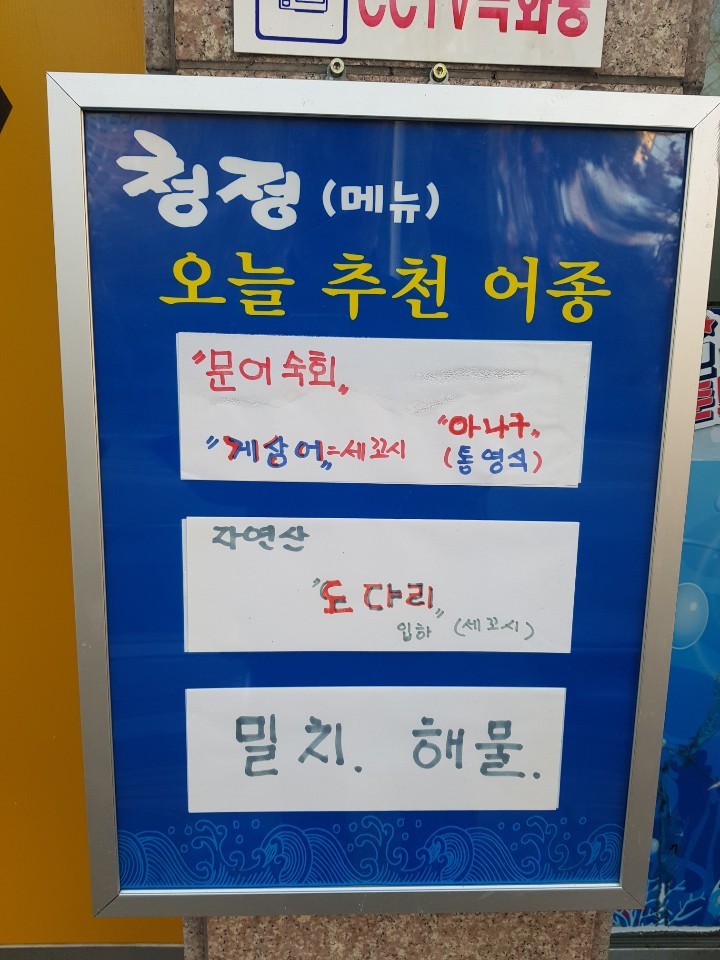 CCTV녹화중
청정 (메뉴)
오늘 추천 어종
"문어숙회"
"게상어"=세꼬시
"아나구"
(통영식)
자연산
"도다리"
입하 (세꼬시)
밀치. 해물.